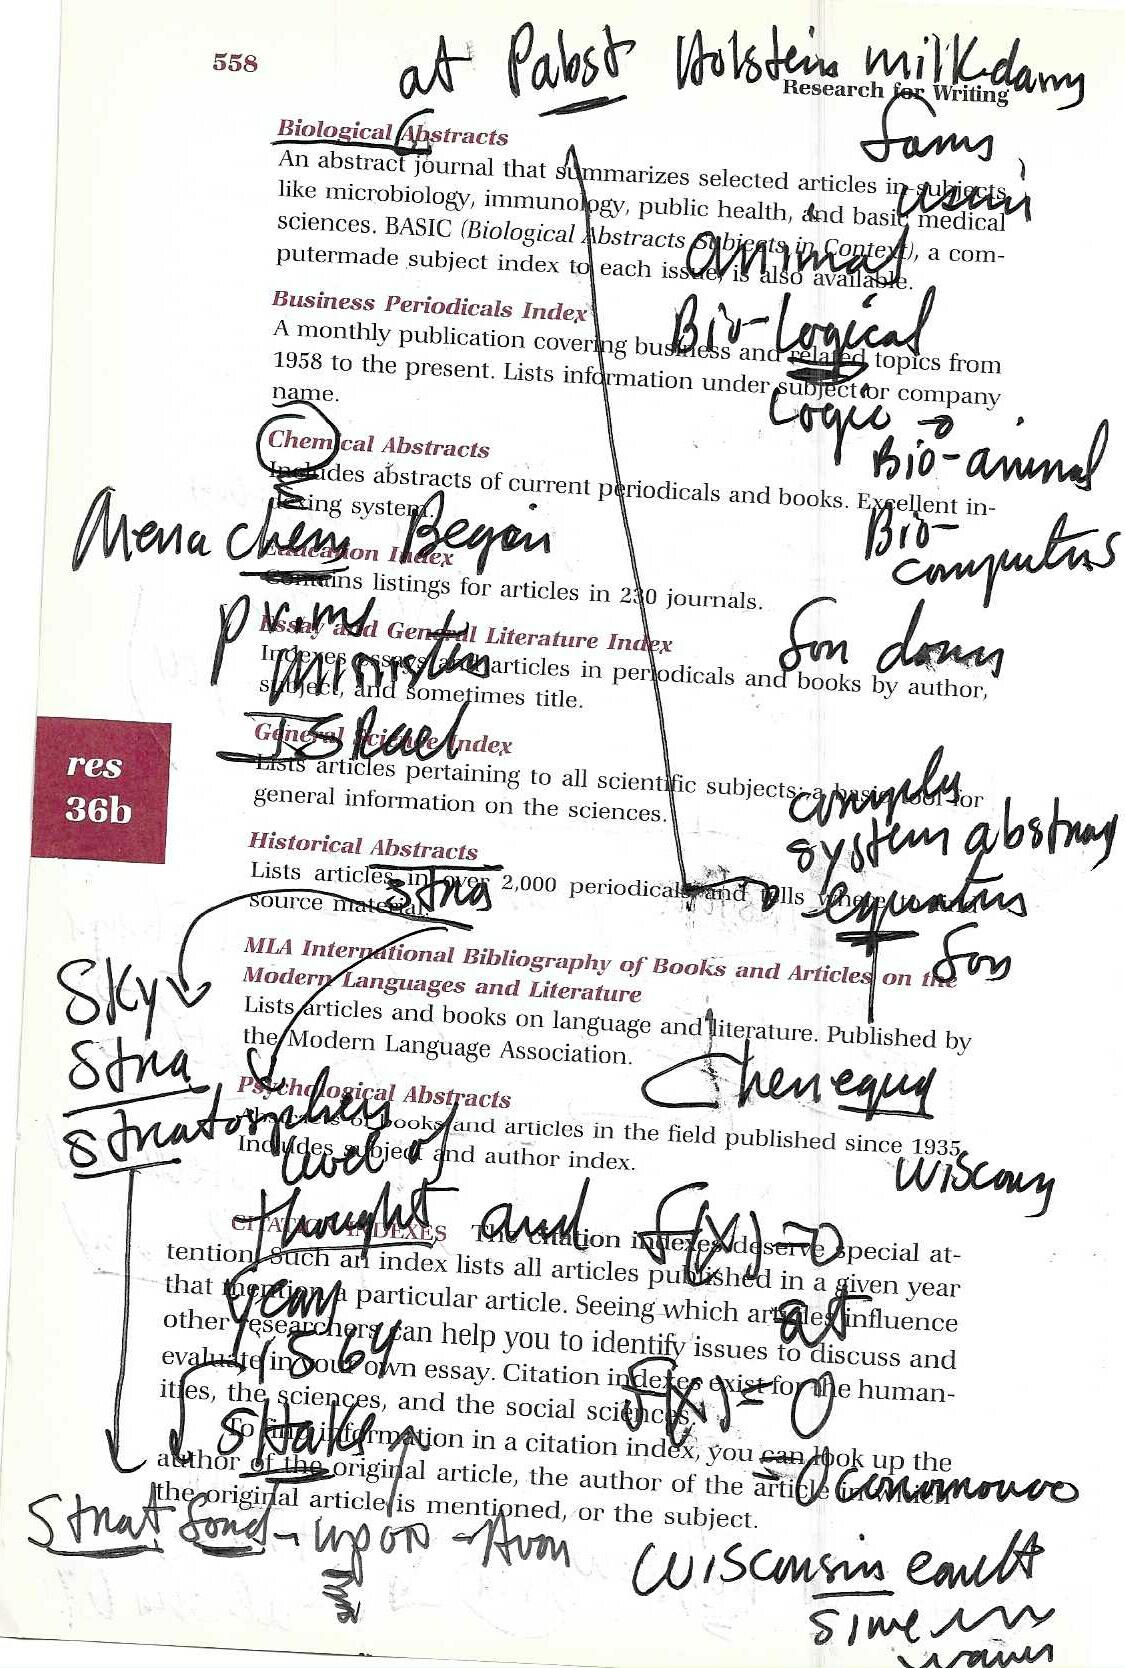 558
at Pabst Holstein milk
Research for Writing
Biological Abstracts
An abstract journal that summarizes selected articles in subjects
like microbiology, immunology, public health, and basic medical
sciences. BASIC (Biological Abstracts Subjects in Context), a com-
putermade subject index to each issue, is also available.
animal
Bio-Logical
Business Periodicals Index
A monthly publication covering business and related topics from
1958 to the present. Lists information under subject or company
name.
Logic
Bio-animal
Chemical Abstracts
Includes abstracts of current periodicals and books. Excellent in-
dexing system.
Menachem Begin
Bio-
computers
Education Index
Contains listings for articles in 230 journals.
prime
minister
Israel
Essay and General Literature Index
Indexes essays and articles in periodicals and books by author,
subject, and sometimes title.
General Science Index
Lists articles pertaining to all scientific subjects; a basic tool for
general information on the sciences.
res
36b
system
Historical Abstracts
Lists articles in over 2,000 periodicals and tells where to find
source material.
stra
Sky
MLA International Bibliography of Books and Articles on the
Modern Languages and Literature
Lists articles and books on language and literature. Published by
the Modern Language Association.
Stra
Chenequa
Psychological Abstracts
Abstracts of books and articles in the field published since 1935.
Includes subject and author index.
level of
thought and f(x)=0
CITATION INDEXES The citation indexes deserve special at-
tention. Such an index lists all articles published in a given year
that mention a particular article. Seeing which articles influence
other researchers can help you to identify issues to discuss and
evaluate in your own essay. Citation indexes exist for the human-
ities, the sciences, and the social sciences.
year
1564
at
f(x)=0
Shakes
To find information in a citation index, you can look up the
author of the original article, the author of the article in which
the original article is mentioned, or the subject.
=Oconomowoc
Stratford-upon-Avon
Wisconsin earth
sine
waves